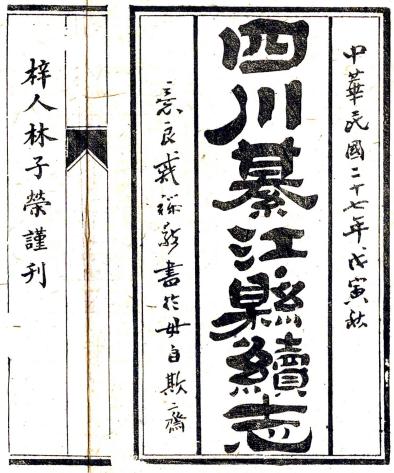 中華民國二十七年戊寅秋
四川綦江縣續志
良戴書於毋自欺齋
梓人林子榮謹刊